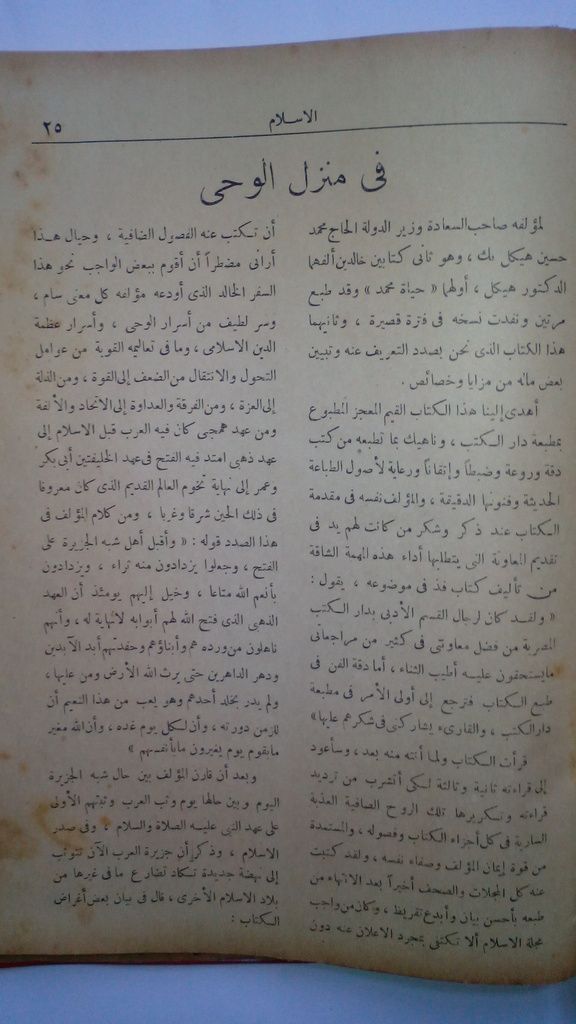 الاسلام
٢٥
فى منزل الوحى
لمؤلفه صاحب السعادة وزير الدولة الحاج محمد
حسين هيكل بك ، وهو ثانى كتابين خالدين ألفهما
الدكتور هيكل ، أولهما « حياة محمد » وقد طبع
مرتين ونفدت نسخه فى فترة قصيرة ، وثانيهما
هذا الكتاب الذى نحن بصدد التعريف عنه وتبيين
بعض ماله من مزايا وخصائص .
أهدى إلينا هذا الكتاب القيم المعجز المطبوع
بمطبعة دار الكتب ، وناهيك بما تطبعه من كتب
دقة وروعة وضبطاً وإتقاناً ورعاية لأصول الطباعة
الحديثة وفنونها الدقيقة ، والمؤلف نفسه فى مقدمة
الكتاب عند ذكر وشكر من كانت لهم يد فى
تقديم المعاونة التى يتطلبها أداء هذه المهمة الشاقة
من تأليف كتاب فذ فى موضوعه ، يقول :
« ولقد كان لرجال القسم الأدبى بدار الكتب
المصرية من فضل معاونتى فى كثير من مراجعاتى
مايستحقون عليه أطيب الثناء ، أما دقة الفن فى
طبع الكتاب فترجع إلى أولى الأمر فى مطبعة
دار الكتب ، والقارىء يشاركنى فى شكرهم عليها»
قرأت الكتاب ولما أنته منه بعد ، وسأعود
إلى قراءته ثانية وثالثة لكى أتشرب من ترديد
قراءته وتكريرها تلك الروح الصافية العذبة
السارية فى كل أجزاء الكتاب وفصوله ، والمستمدة
من قوة إيمان المؤلف وصفاء نفسه ، ولقد كتبت
عنه كل المجلات والصحف أخيراً بعد الانتهاء من
طبعه بأحسن بيان وأبدع تقريظ ، وكان من واجب
مجلة الاسلام ألا تكتفى بمجرد الاعلان عنه دون
أن تكتب عنه الفصول الضافية ، وحيال هذا
أرانى مضطراً أن أقوم ببعض الواجب نحو هذا
السفر الخالد الذى أودعه مؤلفه كل معنى سام ،
وسر لطيف من أسرار الوحى ، وأسرار عظمة
الدين الاسلامى ، وما فى تعاليمه القوية من عوامل
التحول والانتقال من الضعف إلى القوة ، ومن الذلة
إلى العزة ، ومن الفرقة والعداوة إلى الاتحاد والألفة
ومن عهد همجى كان فيه العرب قبل الاسلام إلى
عهد ذهبى امتد فيه الفتح فى عهد الخليفتين أبى بكر
وعمر إلى نهاية تخوم العالم القديم الذى كان معروفا
فى ذلك الحين شرقا وغربا ، ومن كلام المؤلف فى
هذا الصدد قوله : « وأقبل أهل شبه الجزيرة على
الفتح ، وجعلوا يزدادون منه ثراء ، ويزدادون
بأنعم الله متاعا ، وخيل إليهم يومئذ أن العهد
الذهبى الذى فتح الله لهم أبوابه لا نهاية له ، وأنهم
ناهلون من ورده هم وأبناؤهم وحفدتهم أبد الآبدين
ودهر الداهرين حتى يرث الله الأرض ومن عليها ،
ولم يدر بخلد أحدهم وهو يعب من هذا النعيم أن
للزمن دورته ، وأن لكل يوم غده ، وأن الله مغير
مابقوم يوم يغيرون مابأنفسهم »
وبعد أن قارن المؤلف بين حال شبه الجزيرة
اليوم وبين حالها يوم وثب العرب وثبتهم الأولى
على عهد النبى عليه الصلاة والسلام ، وفى صدر
الاسلام ، وذكر أن جزيرة العرب الآن تتوثب
إلى نهضة جديدة تكاد تضارع ما فى غيرها من
بلاد الاسلام الأخرى ، قال فى بيان بعض أغراض
الكتاب :